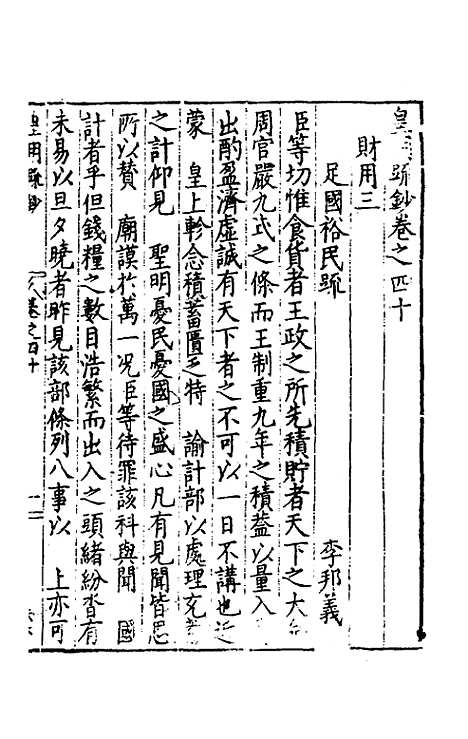 皇明疏鈔卷之四十
財用三
足國裕民疏 李邦義
臣等切惟食貨者王政之所先積貯者天下之大
周官嚴九式之條而王制重九年之積葢以量入
出酌盈濟虛誠有天下者之不可以一日不講也近
蒙 皇上軫念積蓄匱乏特 諭計部以處理充
之計仰見 聖明憂民憂國之盛心凡有見聞皆思
所以贊 廟謨於萬一况臣等待罪該科與聞 國
計者乎但錢糧之數目浩繁而出入之頭緒紛沓有
未易以旦夕曉者昨見該部條列八事以 上亦可
皇明疏鈔 卷之四十 一